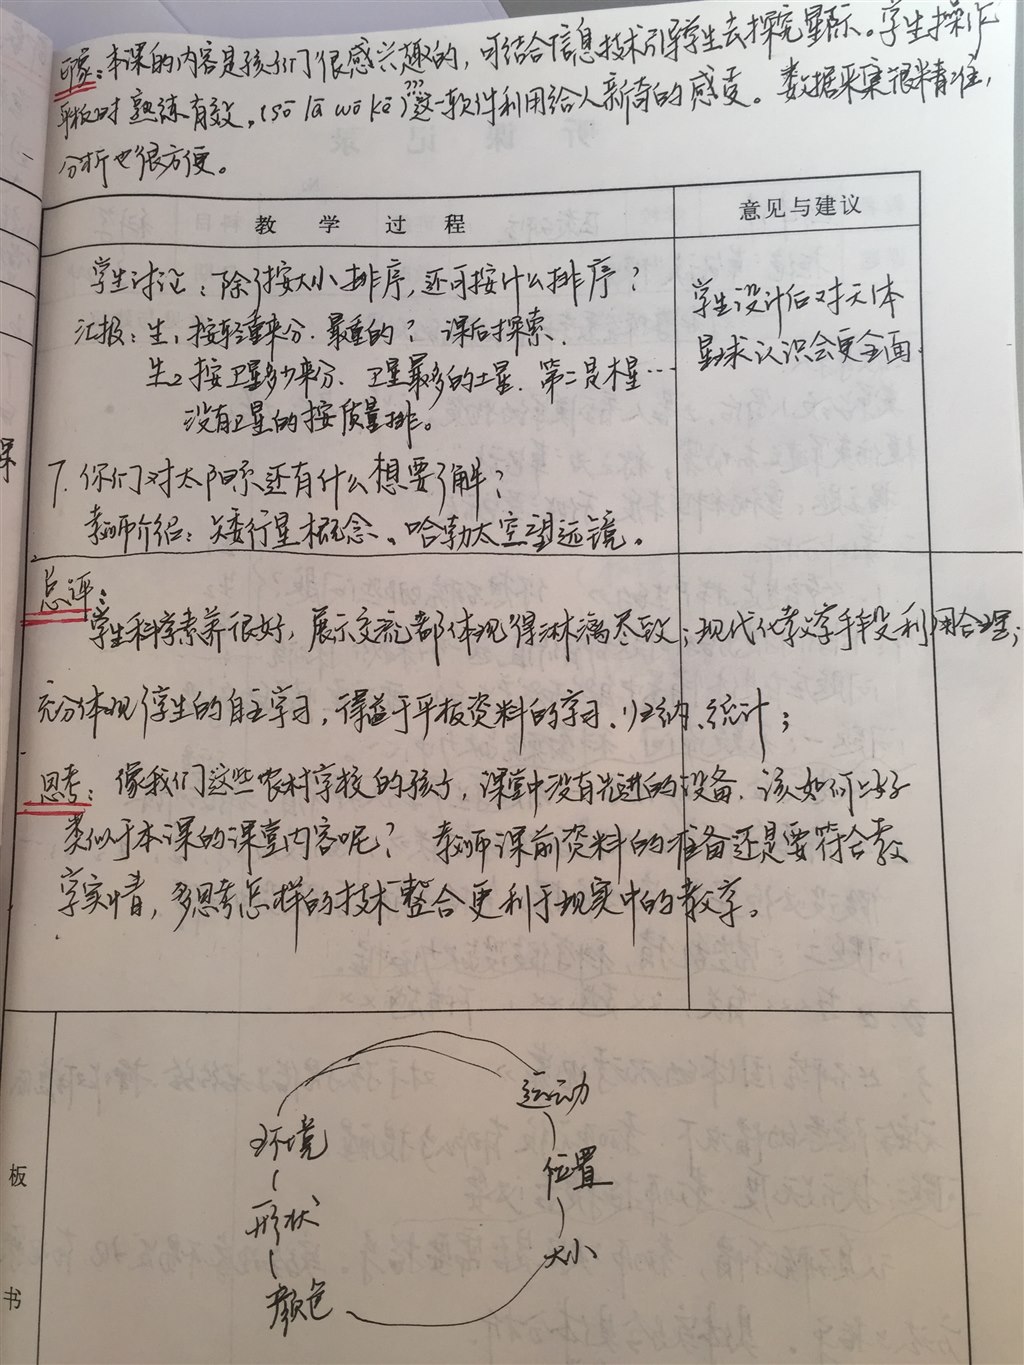 印象:本课的内容是孩子们很感兴趣的,可结合信息技术引导学生去探究星际。学生操作
平板时熟练有效。(sō lā wō kē)???这一软件利用给人新奇的感受。数据采集很精准,
分析也很方便。
教 学 过 程
意见与建议
学生讨论:除了按大小排序,还可按什么排序?
汇报:生1按轻重来分.最重的?课后探索.
生2按卫星多少来分.卫星最多的土星.第二是木星…
没有卫星的按质量排。
7.你们对太阳系还有什么想要了解?
教师介绍:矮行星概念、哈勃太空望远镜。
学生设计后对天体
星球认识会更全面.
总评:
学生科学素养很好,展示交流都体现得淋漓尽致;现代化教学手段利用合理;
充分体现学生的自主学习,得益于平板资料的学习、归纳、统计;
思考:像我们这些农村学校的孩子,课堂中没有先进的设备.该如何上好
类似于本课的课堂内容呢?教师课前资料的准备还是要符合教
学实情,多思考怎样的技术整合更利于现实中的教学。
板
书
运动
环境
位置
形状
大小
颜色